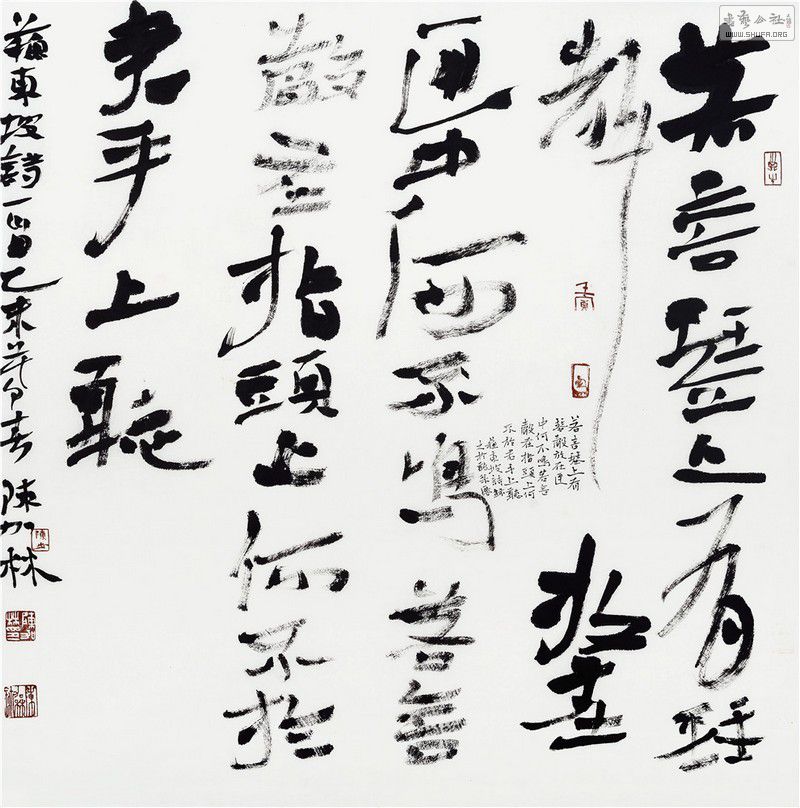 書藝公社
WWW.SHUFA.ORG
若言琴上有琴
聲放在
匣中何不鳴若言
聲在指頭上何不於
君手上聽
若言琴上有
琴聲放在匣
中何不鳴若言
聲在指頭上何
不於君手上聽
蘇東坡詩
蘇東坡詩一首乙未春陳加林